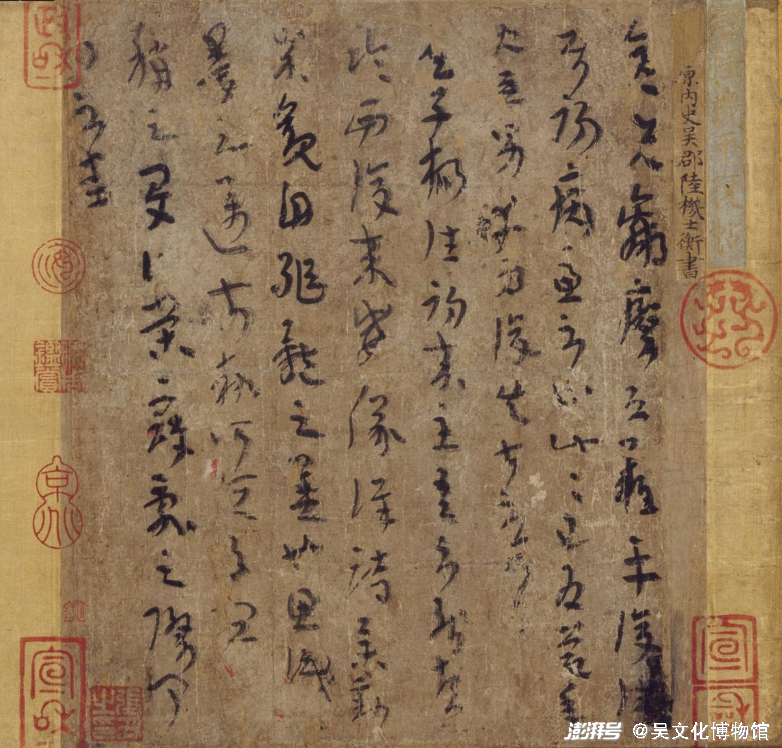 原內史吳郡陸機士衡書
彥先羸瘵恐難平復往屬
初病慮不止此此已為慶承
使唯男幸為復失前憂耳
吳子楊往初來主吾不能盡
臨西復來威儀詳跱舉動
成觀自軀體之美也思識
量之邁前勢所恒有宜
稱之夏伯榮寇亂之際聞
問不悉
政和
宣和
宣和
澎湃号 @吴文化博物馆